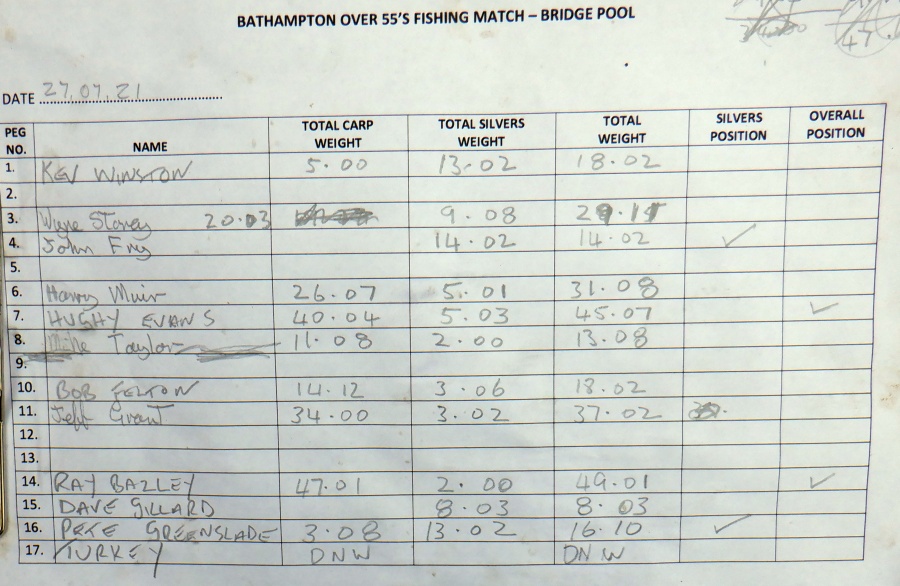 BATHAMPTON OVER 55'S FISHING MATCH – BRIDGE POOL
47
DATE 27.07.21
PEG NO. NAME TOTAL CARP WEIGHT TOTAL SILVERS WEIGHT TOTAL WEIGHT SILVERS POSITION OVERALL POSITION
1. KEV WINSTON 5.00 13.02 18.02
2.
3. Wyne Storey 20.03 9.08 29.11
4. John Fry 14.02 14.02 ✓
5.
6. Harry Muir 26.07 5.01 31.08
7. HUGHY EVANS 40.04 5.03 45.07 ✓
8. Mike Taylor 11.08 2.00 13.08
9.
10. BOB FELTON 14.12 3.06 18.02
11. Jeff Grant 34.00 3.02 37.02
12.
13.
14. RAY BAZLEY 47.01 2.00 49.01 ✓
15. DAVE GILLARD 8.03 8.03
16. PETE GREENSLADE 3.08 13.02 16.10 ✓
17. TURKEY DNW DNW